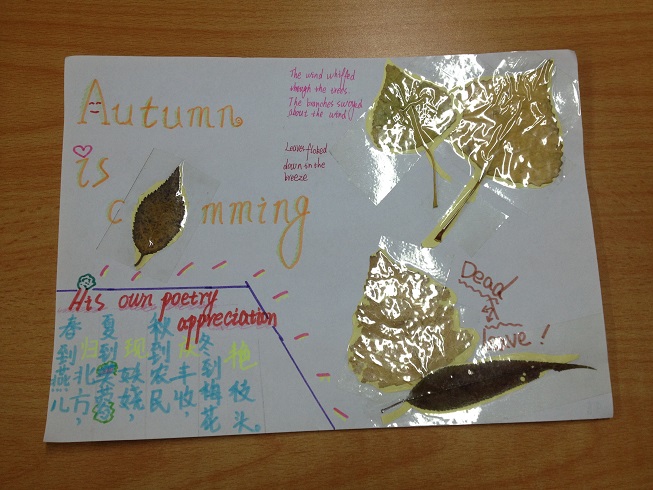 Autumn
is
c mming
The wind whistled
though the trees.
The branches swayed
about the wind!
Leaves floked
down in the
breeze
Dead
leave!
His own poetry
appreciation
春到燕儿
归北方，
夏到
现妖娆，
秋到农民
庆丰收，
冬到梅花
艳枝头。